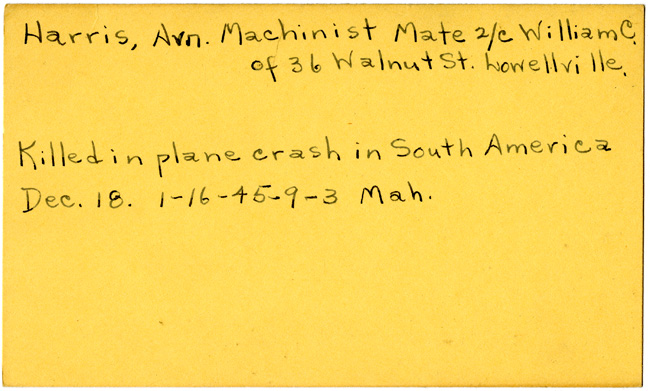 Harris, Avn. Machinist Mate 2/c William C.
of 36 Walnut St. Lowellville.
Killed in plane crash in South America
Dec. 18. 1-16-45-9-3 Mah.